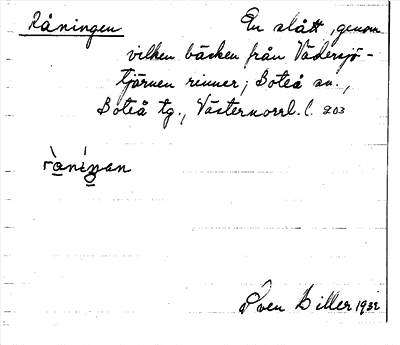 Råningen En slått, genom
vilken bäcken från Vädersjö-
tjärnen rinner; Boteå sn.,
Boteå tg., Västernorrl. l. 203
Sven Biller 1932